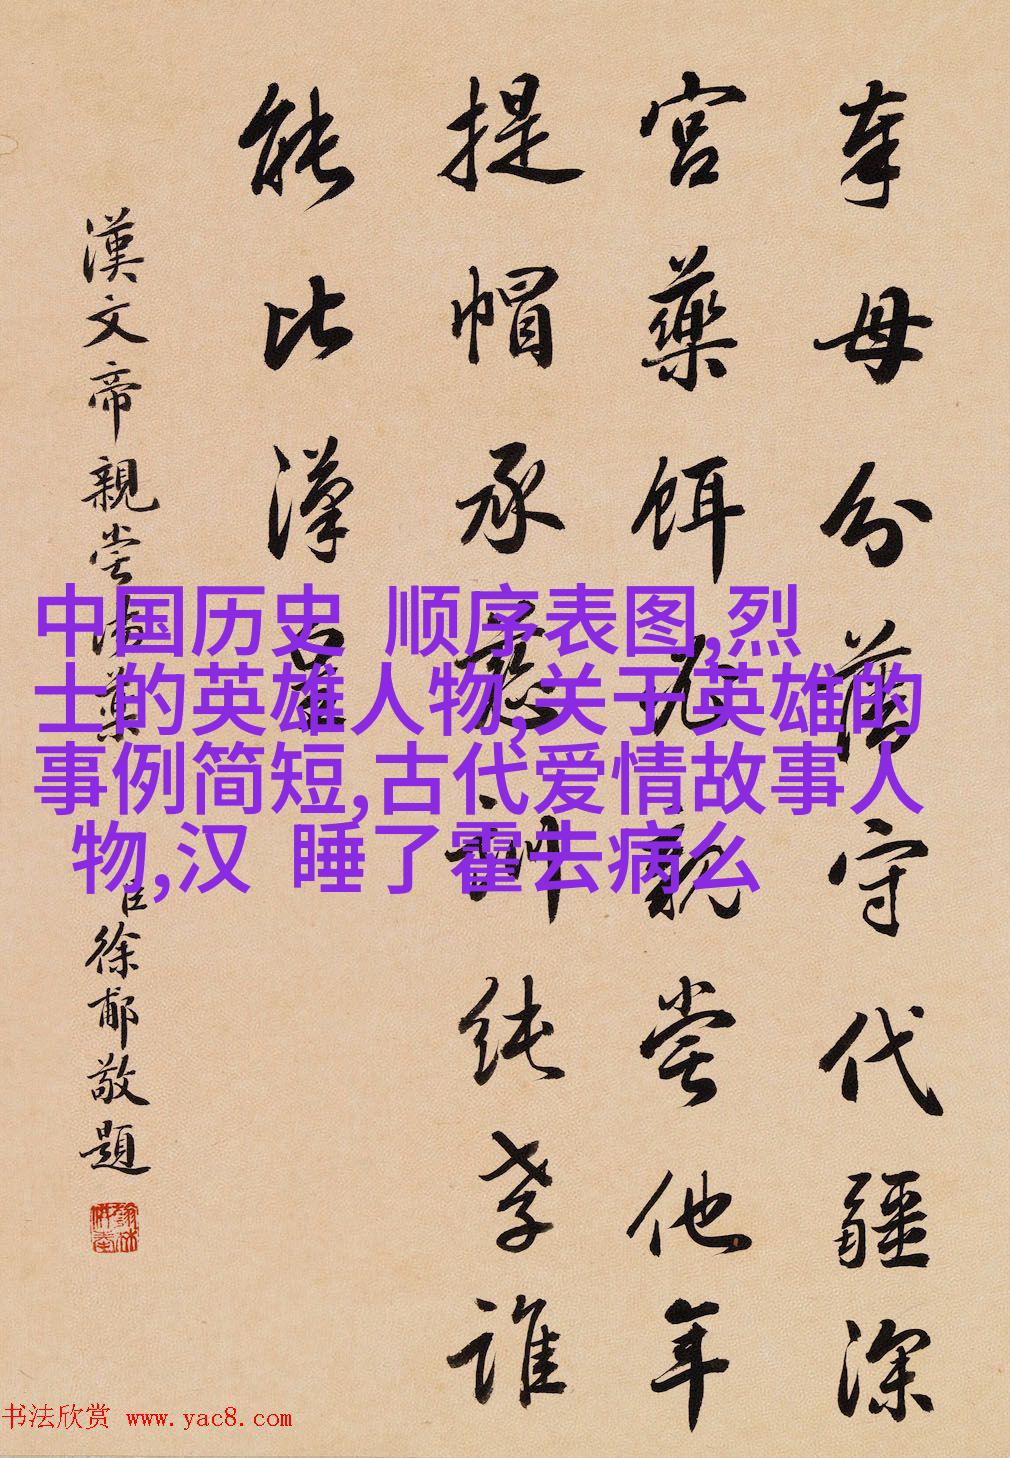 奉母分藩守代疆深
宮藥餌親嘗他年
提帽承慈訓純孝誰
能比漢皇
漢文帝親嘗湯藥
臣徐郙敬題
中国历史 顺序表图,烈
士的英雄人物,关于英雄的
事例简短,古代爱情故事人
物,汉 睡了霍去病么
书法欣赏 www.yac8.com